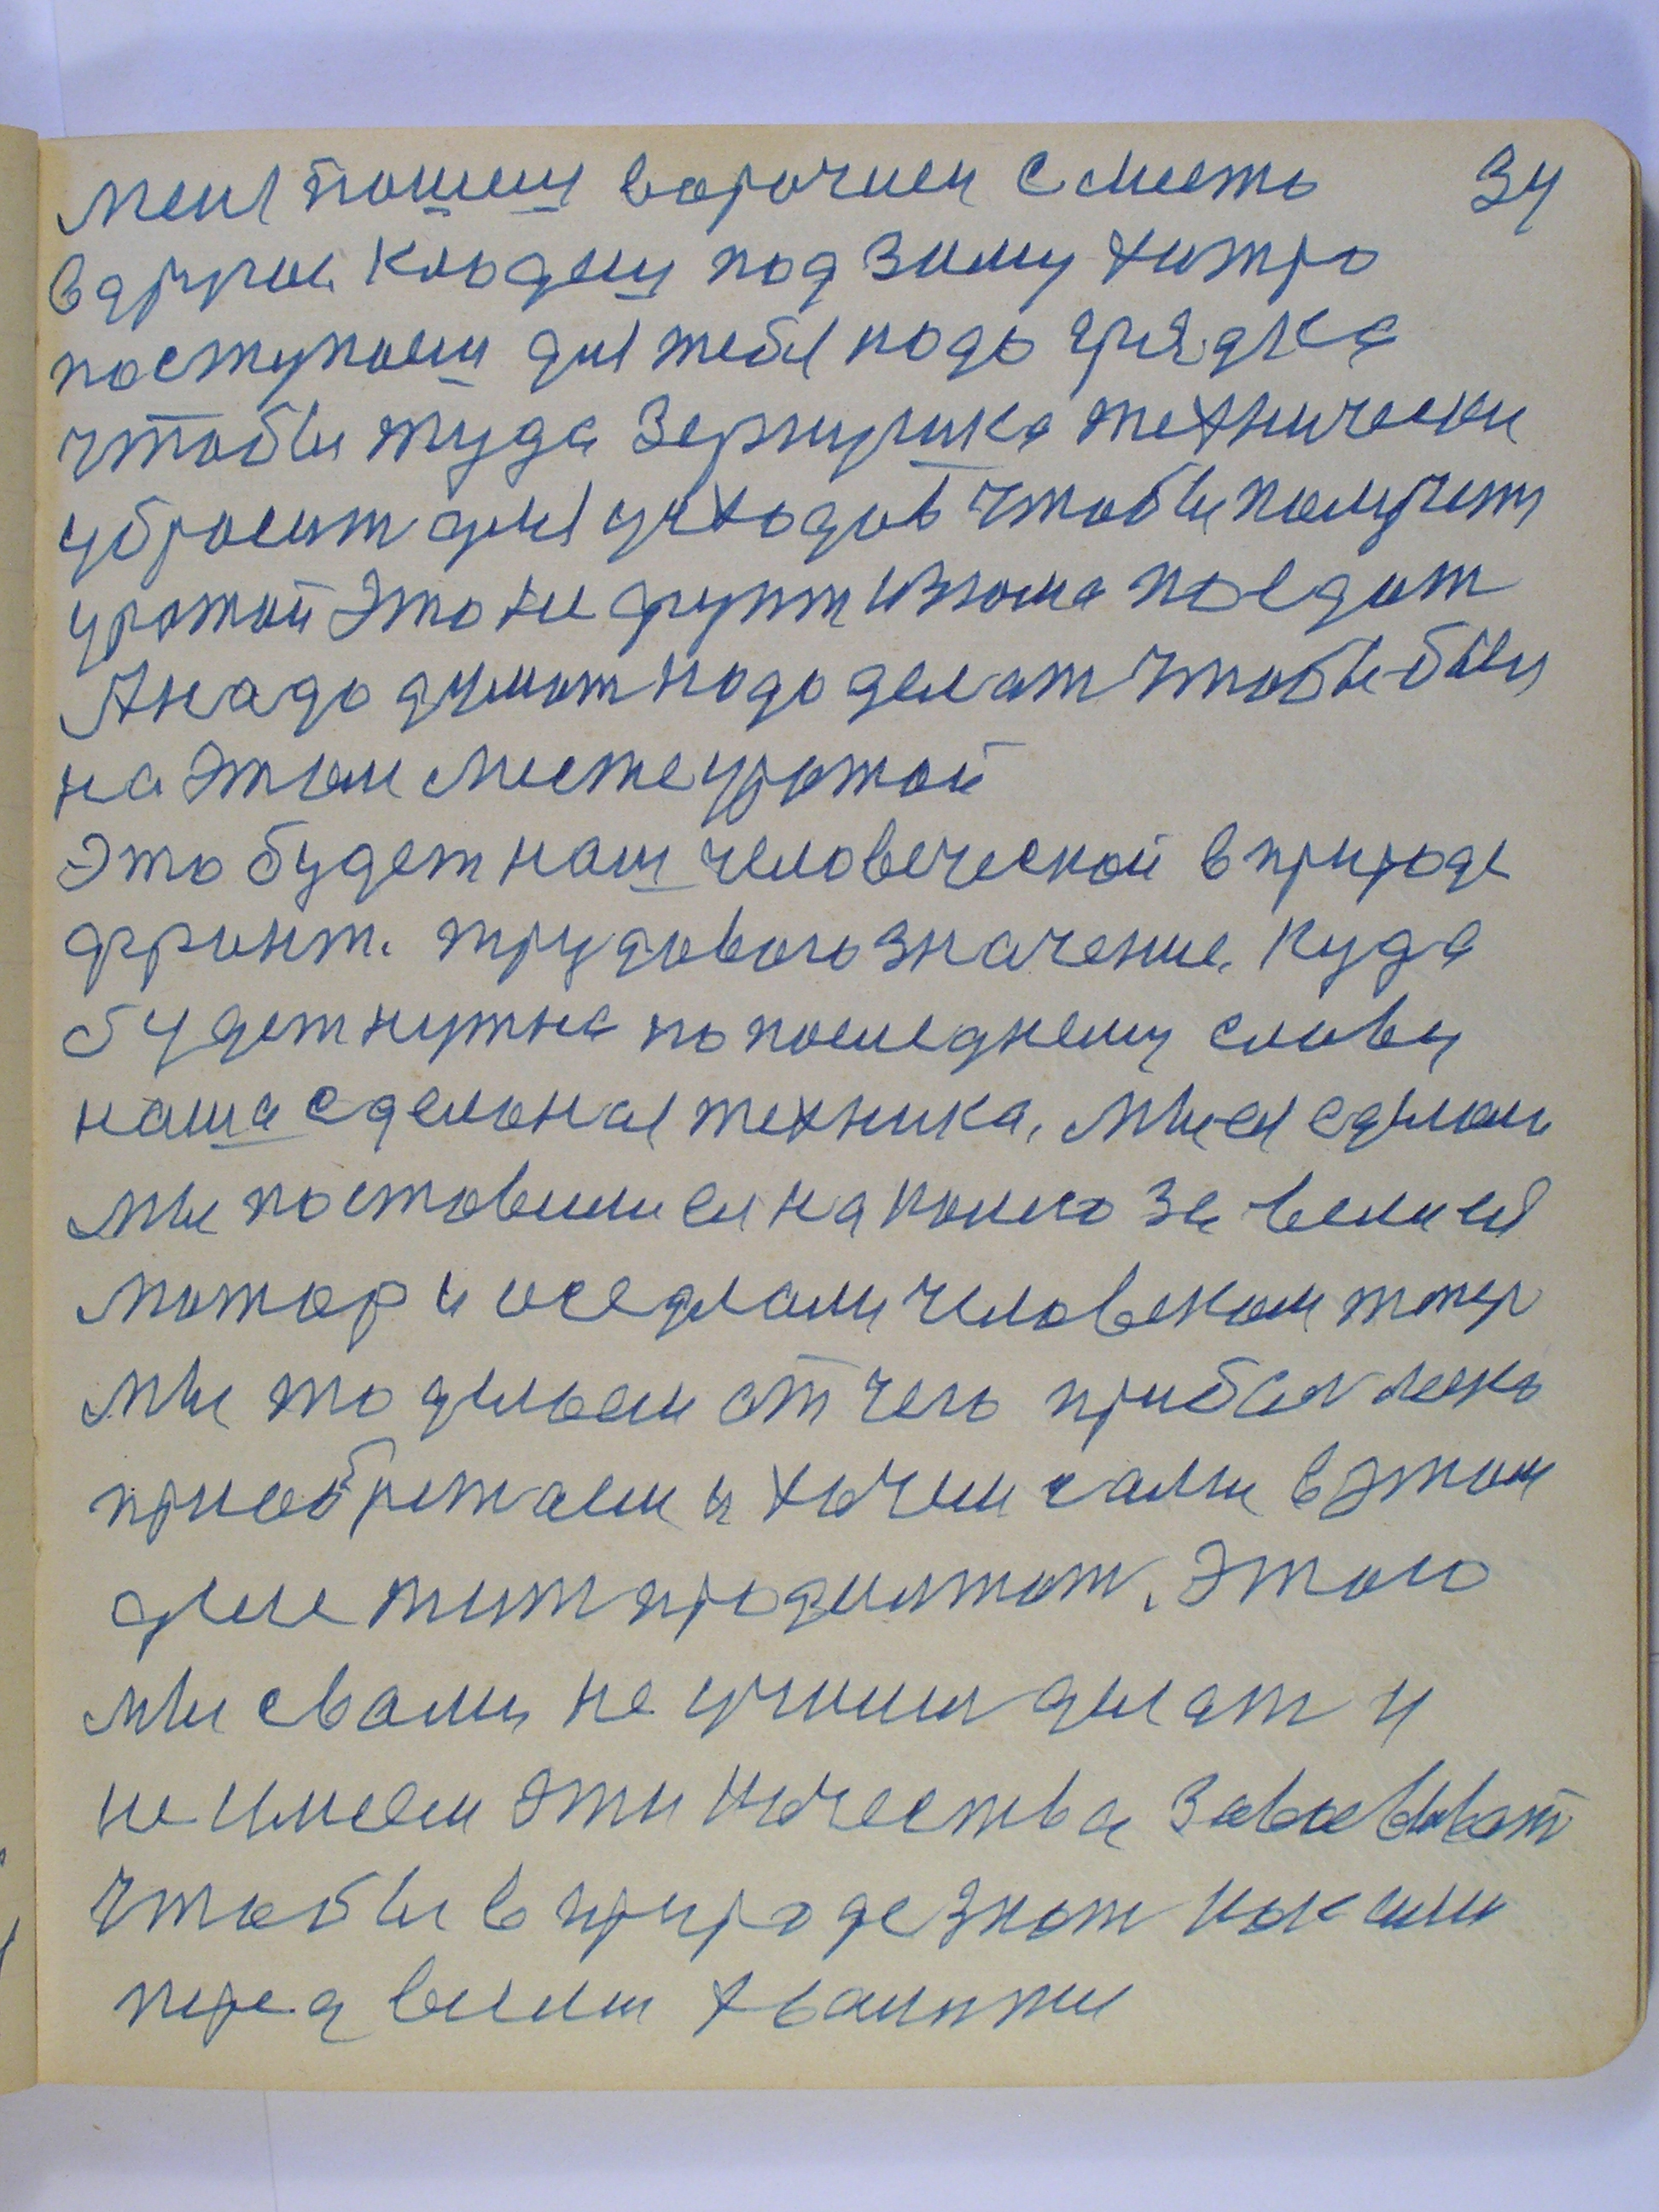 34
меня пошеш ворочиеш с место
в другое. Кладеш под зиму хитро
поступаеш для тебя надо грядка
чтобы туда зернушка технически
убросит для уходов чтобы получит
урожай Это не фунт изюма поедат
А надо думат надо делат чтобы был
на этом месте урожай
Это будет наш человеческой в природе
фронт. трудового значение. Куда
будет нужна по последнему слову
наша сделоная техника. Мы ея сделали
мы поставили ея на колисо завели ея
мотор и оседлали человеком тепер
мы то делаем от чего прибавлено
приобретаем и хочим сами в этом
деле жит продолжат. Этого
мы с вами не учили делат и
не имеем эти качества завоевыват
чтобы в природе знат как или
перед всеми хвалитя